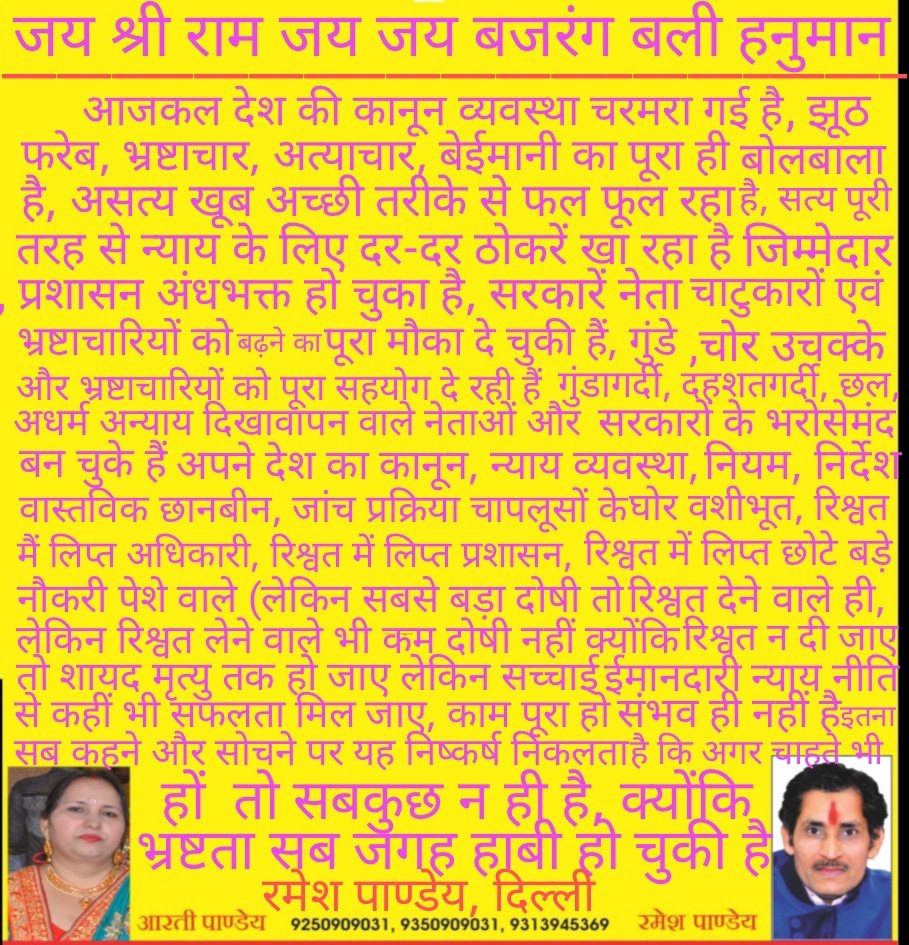 जय श्री राम जय जय बजरंग बली हनुमान
आजकल देश की कानून व्यवस्था चरमरा गई है, झूठ
फरेब, भ्रष्टाचार, अत्याचार, बेईमानी का पूरा ही बोलबाला
है, असत्य खूब अच्छी तरीके से फल फूल रहा है, सत्य पूरी
तरह से न्याय के लिए दर-दर ठोकरें खा रहा है जिम्मेदार
, प्रशासन अंधभक्त हो चुका है, सरकारें नेता चाटुकारों एवं
भ्रष्टाचारियों को बढ़ने का पूरा मौका दे चुकी हैं, गुंडे ,चोर उचक्के
और भ्रष्टाचारियों को पूरा सहयोग दे रही हैं गुंडागर्दी, दहशतगर्दी, छल,
अधर्म अन्याय दिखावापन वाले नेताओं और सरकारों के भरोसेमंद
बन चुके हैं अपने देश का कानून, न्याय व्यवस्था, नियम, निर्देश
वास्तविक छानबीन, जांच प्रक्रिया चापलूसों के घोर वशीभूत, रिश्वत
मैं लिप्त अधिकारी, रिश्वत में लिप्त प्रशासन, रिश्वत में लिप्त छोटे बड़े
नौकरी पेशे वाले (लेकिन सबसे बड़ा दोषी तो रिश्वत देने वाले ही,
लेकिन रिश्वत लेने वाले भी कम दोषी नहीं क्योंकि रिश्वत न दी जाए
तो शायद मृत्यु तक हो जाए लेकिन सच्चाई ईमानदारी न्याय नीति
से कहीं भी सफलता मिल जाए, काम पूरा हो संभव ही नहीं है इतना
सब कहने और सोचने पर यह निष्कर्ष निकलता है कि अगर चाहते भी
हों तो सबकुछ न ही है, क्योंकि
भ्रष्टता सब जगह हाबी हो चुकी है
रमेश पाण्डेय, दिल्ली
आरती पाण्डेय 9250909031, 9350909031, 9313945369 रमेश पाण्डेय